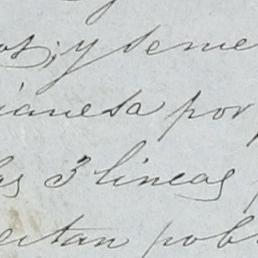 os; y seme
ianesa por
las 3 lineas
ectan pobl